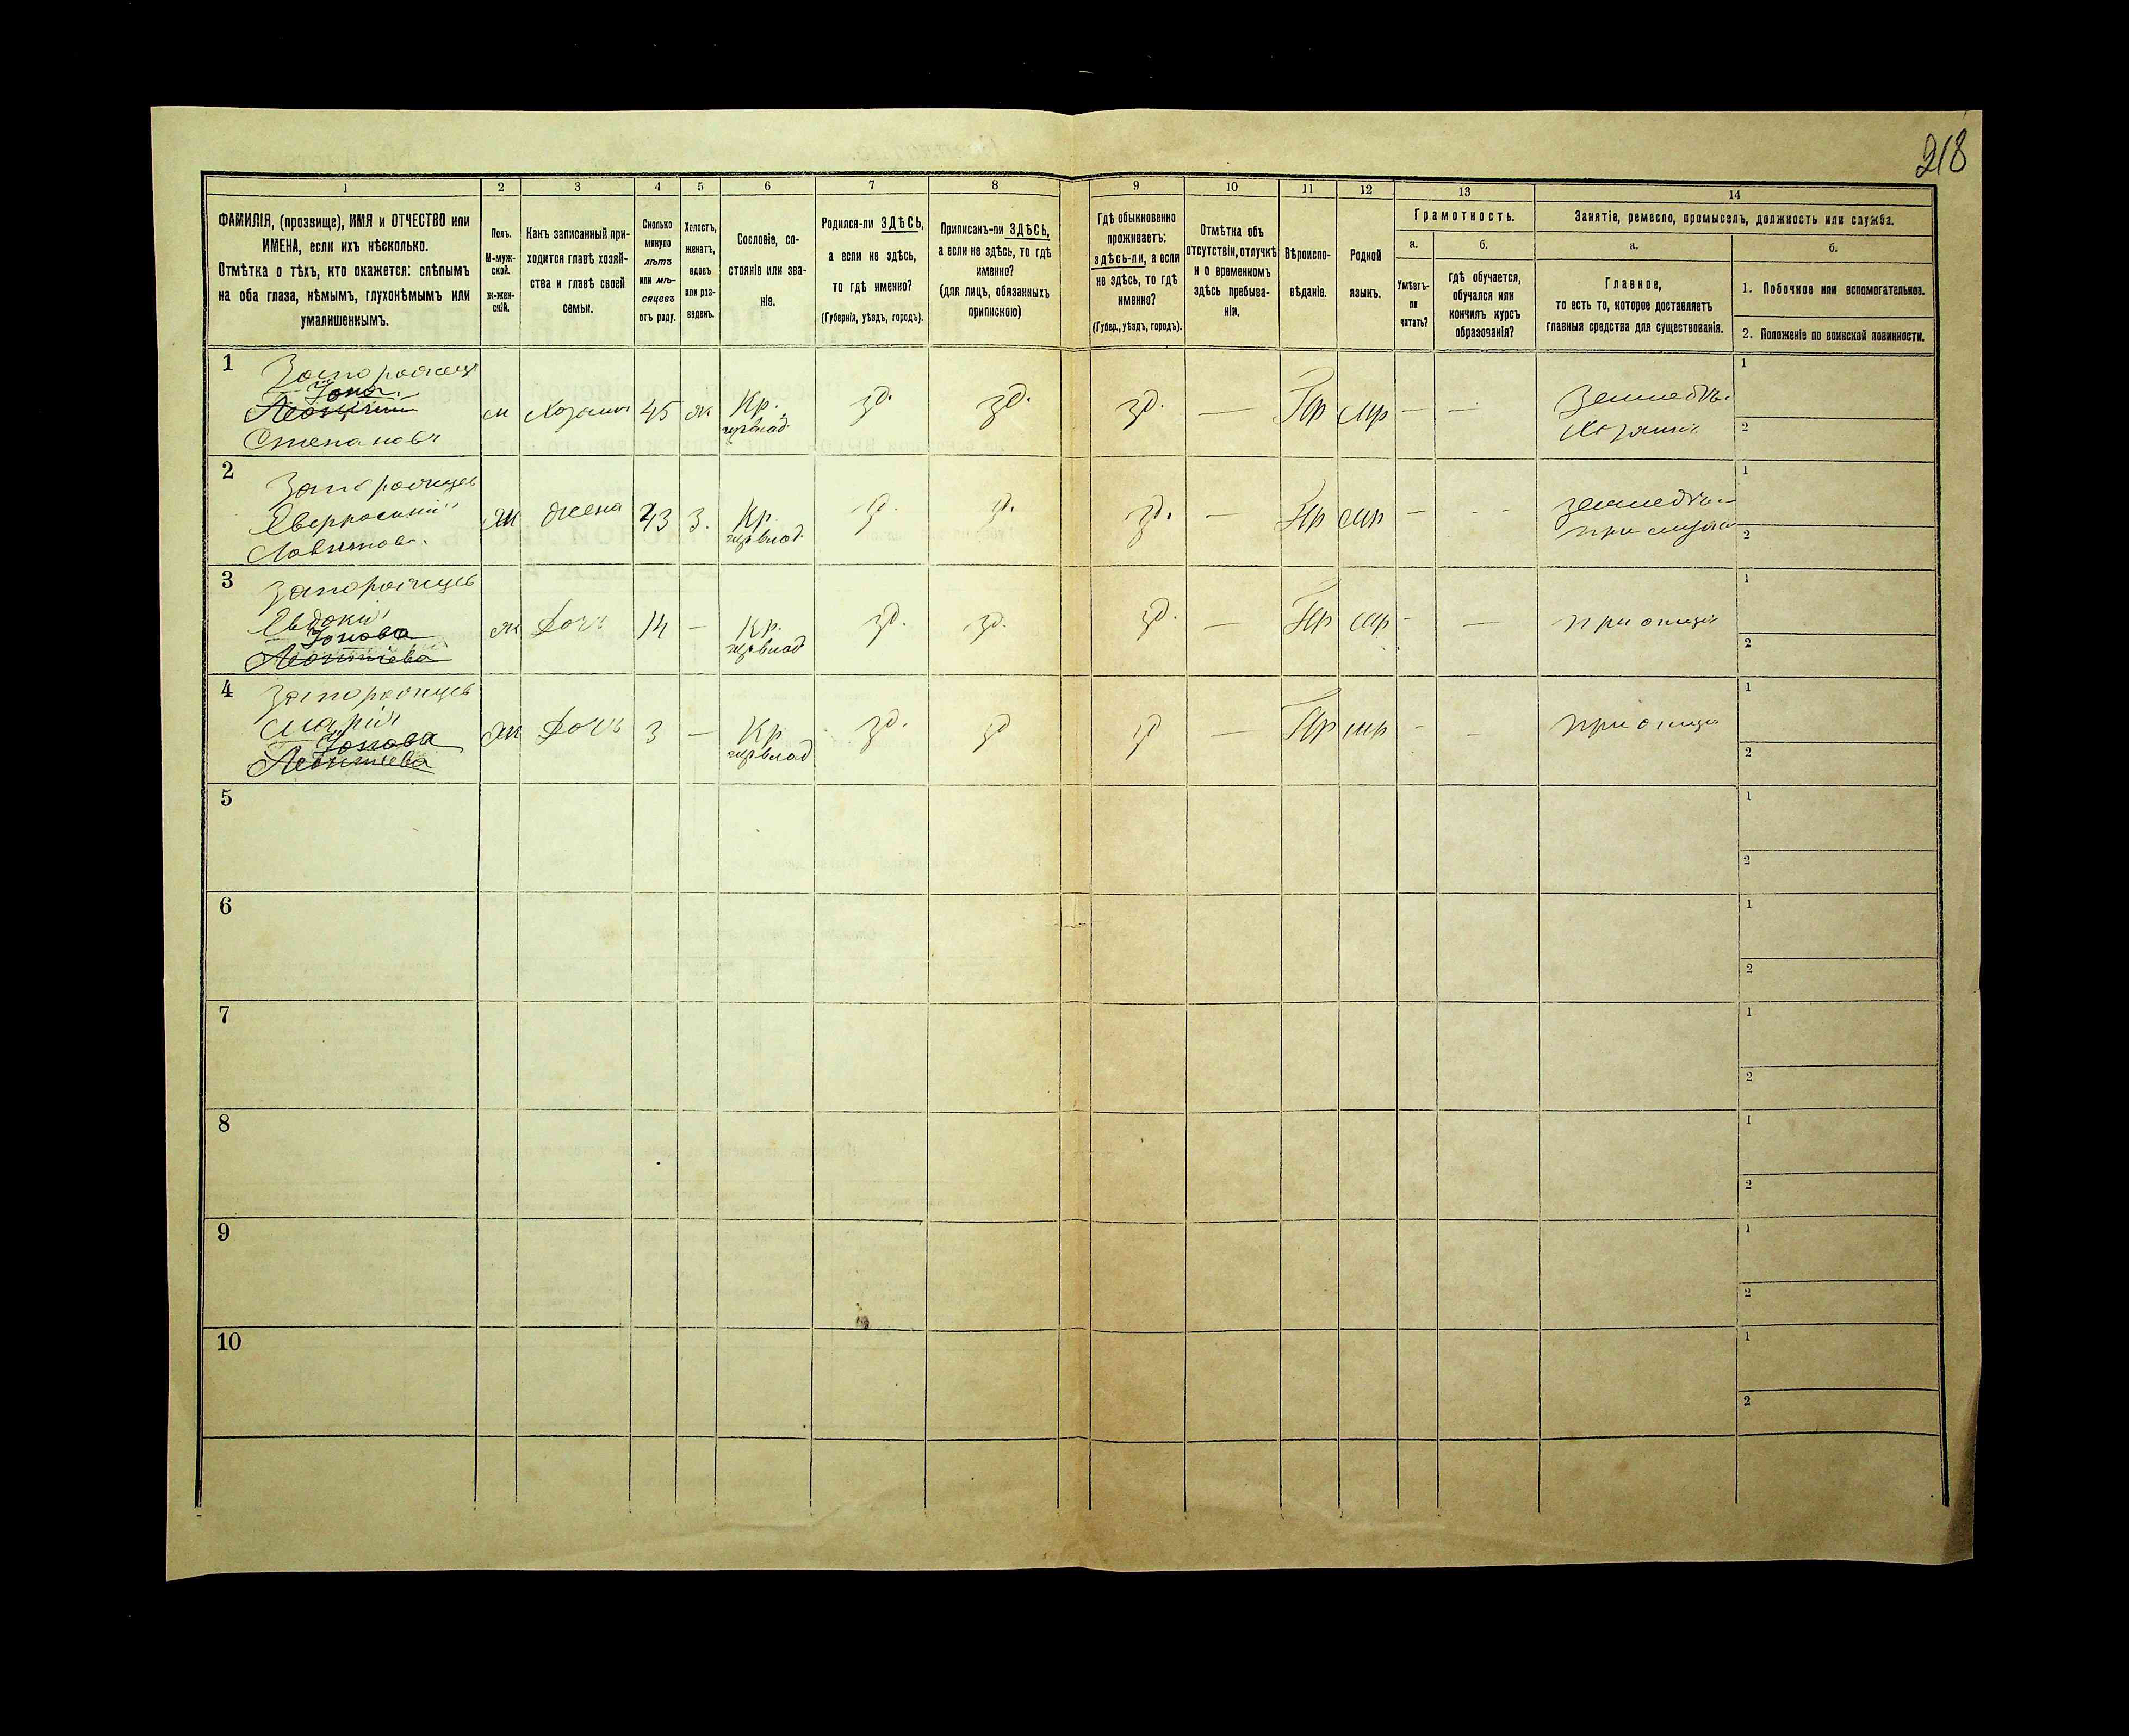 218
1 2 3 4 5 6 7 8 9 10 11 12 13 14
ФАМИЛІЯ, (прозвище), ИМЯ и ОТЧЕСТВО или
ИМЕНА, если ихъ нѣсколько.
Отмѣтка о тѣхъ, кто окажется: слѣпымъ
на оба глаза, нѣмымъ, глухонѣмымъ или
умалишеннымъ.
Полъ.
М-муж-
ской.
ж-жен-
скій.
Какъ записанный при-
ходится главѣ хозяй-
ства и главѣ своей
семьи.
Сколько
минуло
лѣтъ
или мѣ-
сяцевъ
отъ роду.
Холостъ,
женатъ,
вдовъ
или раз-
веденъ.
Сословіе, со-
стояніе или зва-
ніе.
Родился-ли ЗДѢСЬ,
а если не здѣсь,
то гдѣ именно?
(Губернія, уѣздъ, городъ).
Приписанъ-ли ЗДѢСЬ,
а если не здѣсь, то гдѣ
именно?
(для лицъ, обязанныхъ
припискою)
Гдѣ обыкновенно
проживаетъ:
здѣсь-ли, а если
не здѣсь, то гдѣ
именно?
(Губер., уѣздъ, городъ).
Отмѣтка объ
отсутствіи, отлучкѣ
и о временномъ
здѣсь пребыва-
ніи.
Вѣроиспо-
вѣданіе.
Родной
языкъ.
Грамотность.
а.
Умѣетъ-
ли
читать?
б.
гдѣ обучается,
обучался или
кончилъ курсъ
образованія?
Занятіе, ремесло, промыселъ, должность или служба.
а.
Главное,
то есть то, которое доставляетъ
главныя средства для существованія.
б.
1. Побочное или вспомогательное.
2. Положеніе по воинской повинности.
1
Іона
Леонтій
Степановъ
м Хозяинъ 45 ж Кр. зд. зд. зд. — Пр мр — —
Хозяинъ
1
2
2
Запорожцев
ж жена 43 з. Кр. зд. зд. зд. — Пр мр — -
1
2
3
Запорожцев
Евдокія
Іонова
Леонтіева
ж Дочь 14 — Кр. зд. зд. зд. — Пр мр - — при отцѣ
1
2
4
Запорожцев
Марія
Іонова
Леонтіева
ж Дочь 3 — Кр зд. зд зд — Пр мр - - при отцѣ
1
2
5
1
2
6
1
2
7
1
2
8
1
2
9
1
2
10
1
2